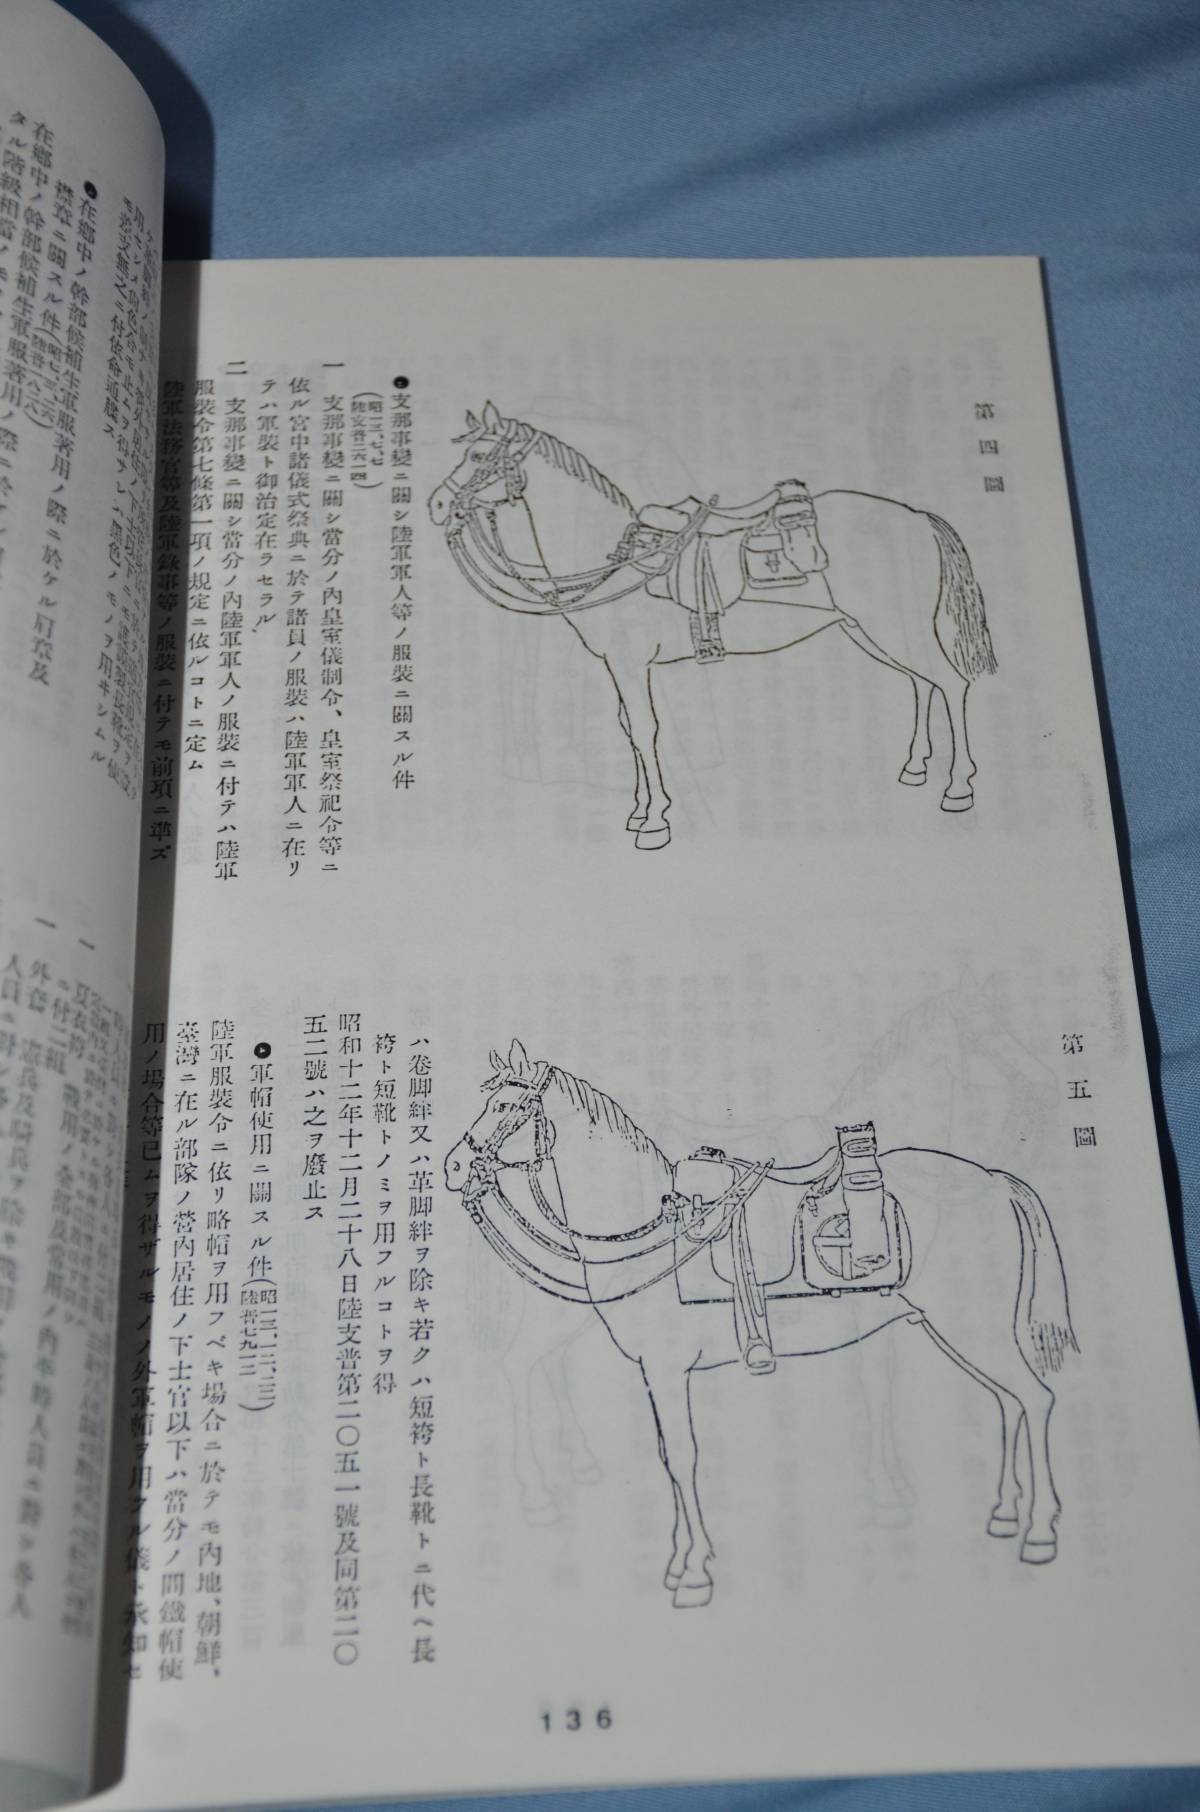 第四圖
●支那事變ニ關シ陸軍軍人等ノ服裝ニ關スル件
(昭一三、七、七
陸支普二六一四)
一 支那事變ニ關シ當分ノ內皇室儀制令、皇室祭祀令等ニ
依ル宮中諸儀式祭典ニ於テ諸員ノ服裝ハ陸軍軍人ニ在リ
テハ軍裝ト御治定在ラセラル
二 支那事變ニ關シ當分ノ內陸軍軍人ノ服裝ニ付テハ陸軍
服裝令第七條第一項ノ規定ニ依ルコトニ定ム
陸軍法務官等及陸軍錄事等ノ服裝ニ付テモ前項ニ準ズ
第五圖
ハ卷脚絆又ハ革脚絆ヲ除キ若クハ短袴ト長靴トニ代ヘ長
袴ト短靴トノミヲ用フルコトヲ得
昭和十二年十二月二十八日陸支普第二〇五一號及同第二〇
五二號ハ之ヲ廢止ス
●軍帽使用ニ關スル件(昭一三、一二、三
陸普七九一二)
陸軍服裝令ニ依リ略帽ヲ用フベキ場合ニ於テモ內地、朝鮮、
臺灣ニ在ル部隊ノ營內居住ノ下士官以下ハ當分ノ間鐵帽使
用ノ場合等已ムヲ得ザルモノノ外軍帽ヲ用フル儀ト承知セ
136
●在鄕中ノ幹部候補生軍服著用ノ際ニ於ケル肩章及
襟章ニ關スル件
在鄕中ノ幹部候補生軍服著用ノ際ニ於
タル階級相當ノ